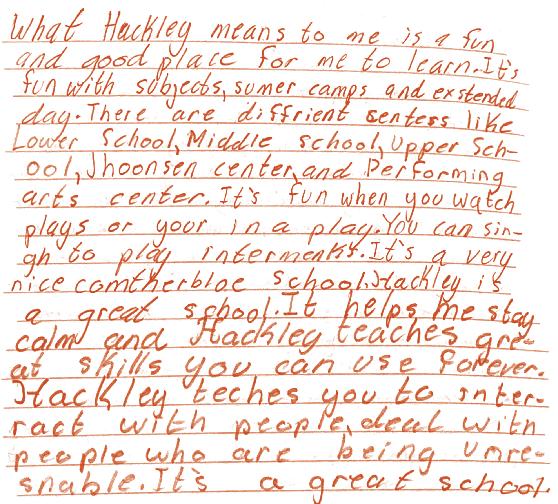 What Hackley means to me is a fun
and good place for me to learn. It's
fun with subjects, sumer camps and exstended
day. There are diffrient senters like
Lower School, Middle school, Upper Sch-
ool, Jhoonsen center, and Performing
arts center. It's fun when you watch
plays or your in a play. You can sin-
gh to play intermenks. It's a very
nice comtherbloe school. Hackley is
a great school. It helps me stay
calm and Hackley teaches gre-
at skills you can use forever.
Hackley teches you to inter-
ract with people, deal with
people who are being unre-
snable. It's a great school.